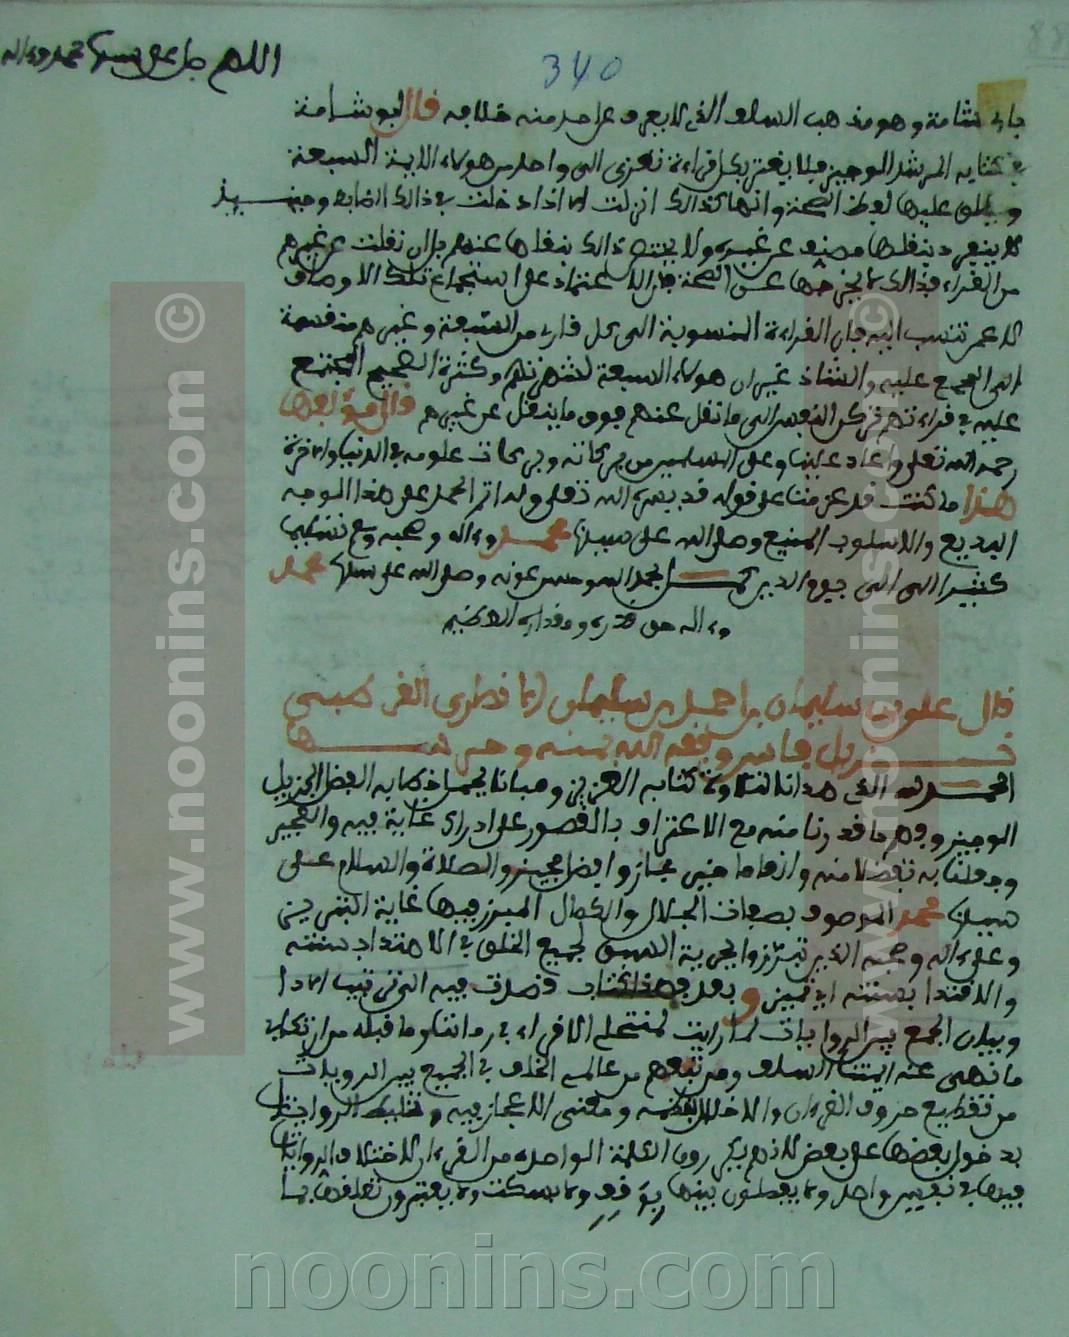 340
اللهم صل على سيدنا محمد وءاله
شامة وهو مذهب السلف الذي لا يعرف عن احد منه خلافه قال ابو شامة
في كتابه المرشد الوجيز فلا يغتر بكل قراءة تعزى الى واحد من هولاء الايمة السبعة
ويطلق عليها لفظ الصحة وانها كذالك انزلت الا اذا دخلت في ذالك الضابط وحينيذ
لا ينفرد بنقلها مصنف عن غيره ولا يختص ذالك بنقلها عنهم بل ان نقلت عن غيرهم
من القراء فذالك لا يخرجها عن الصحة فان الاعتماد على استجماع تلك الاوصاف
لا عمن تنسب اليه فان القراءة المنسوبة الى كل قارئ من السبعة وغيرهم منقسمة
الى المجمع عليه والشاذ غير ان هولاء السبعة لشهرتهم وكثرة الصحيح المجتمع
عليه في قراءتهم تركن النفس الى ما نقل عنهم فوق ما ينقل عن غيرهم قال مولفها
رحمه الله تعلى واعاد علينا وعلى المسلمين من بركاته وبركات علومه في الدنيا والاخرة
هذا ما كنت قد عزمنا على قوله قد يسره الله تعلى وله اتم الحمد على هذا الوجه
البديع والاسلوب المنيع وصلى الله على سيدنا محمد وءاله وصحبه وسلم تسليما
كثيرا الى يوم الدين كمل بحمد الله وحسن عونه وصلى الله على سيدنا محمد
وءاله حق قدره ومقداره العظيم
قال علي بن سليمان بن احمد بن سليمان القرطبي
نزيل فاس وفقه الله بمنه
الحمد لله الذي هدانا لتلاوة كتابه العزيز وحبانا الفضل الجزيل
الوجيز مع الاعتراف بالقصور على ادراك غاية فيه والتعجيز
تفضلا منه والصلاة والسلام على
سيدنا محمد الموصوف بصفات الجلال والكمال المبرز فيها غاية التبريز
وعلى ءاله وصحبه الذين تميزوا بمزية السبق لجميع الخلق في الاهتداء بسنته
والاقتدا وبعد فهذا كتاب قصدت فيه الى ترتيب الادا
وبيان الجمع بين الروايات لما رايت لمنتحلي الاقراء في زماننا وما قبله من ارتكاب
ما نهى عنه ايمتنا السلف ومن تبعهم من عالمي الخلف في الجمع بين الروايات
من تقطيع حروف القرءان والاخلال بنظمه ومعنى الاعجاز فيه وتخليط الروايات
بدخول بعضها على بعض لانهم يكررون الكلمة الواحدة من القرءان لاختلاف الروايات
فيها في نفس واحد ولا يفصلون بينها بوقف ولا بسكت ولا يعتبرون تعلقها بما
www.noonins.com ©
www.noonins.com ©
noonins.com